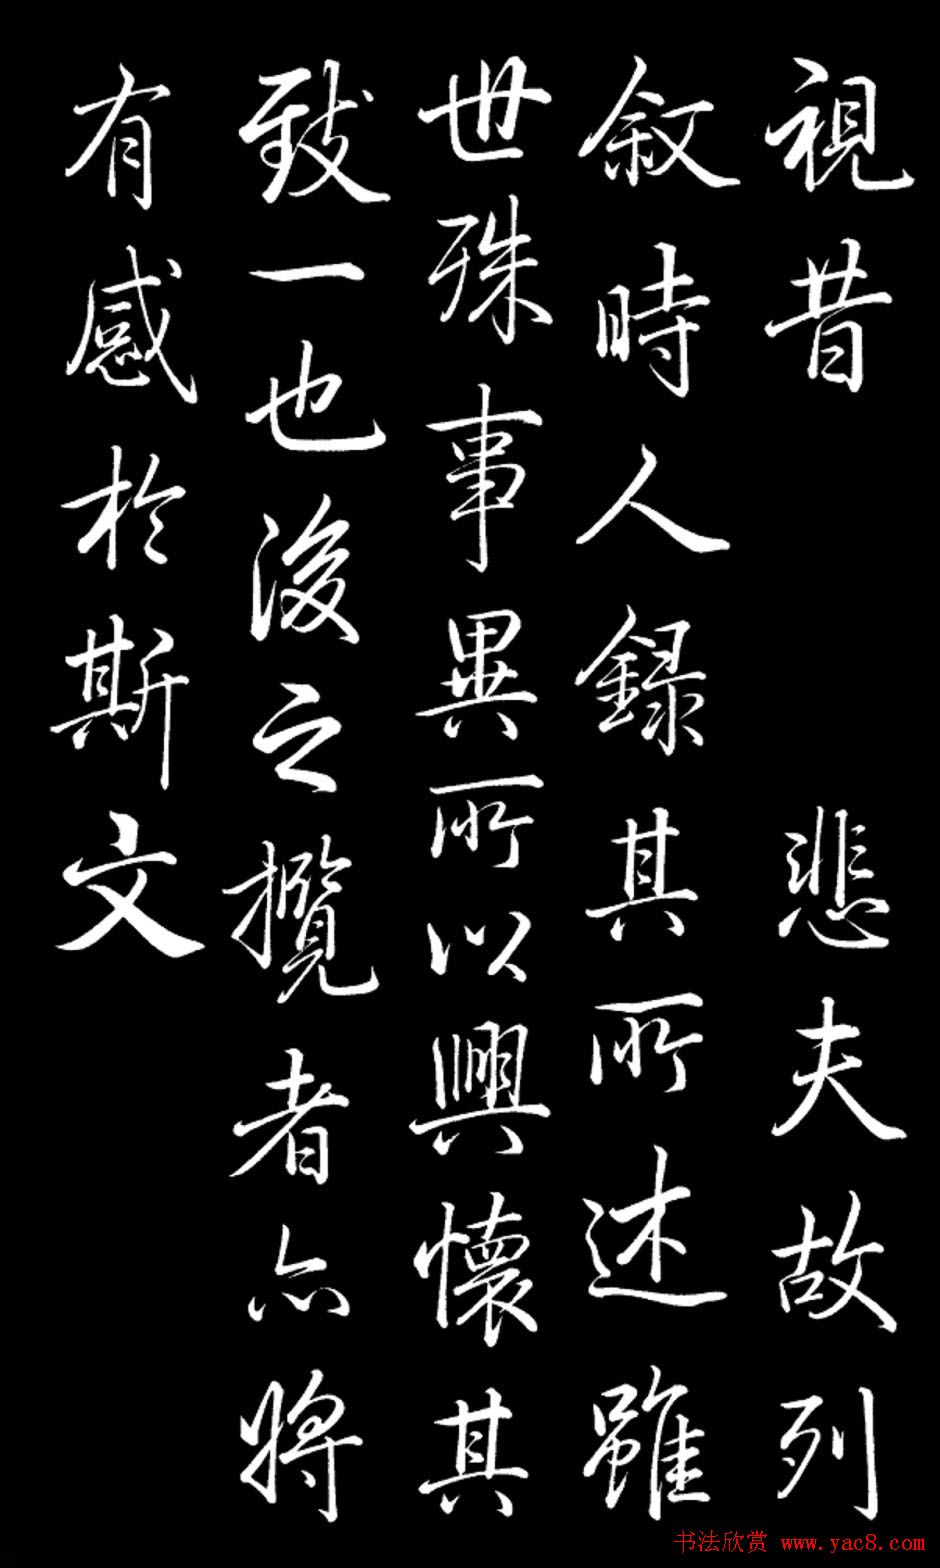 視昔 悲夫故列
敘時人録其所述雖
世殊事異所以興懷其
致一也後之攬者亦將
有感於斯文
书法欣赏 www.yac8.com